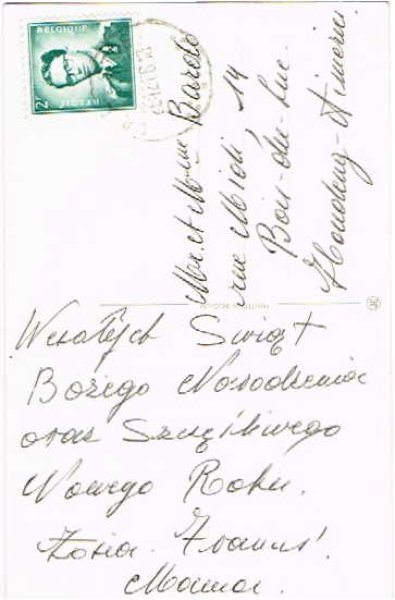 BELGIQUE
2F
BELGIE
Mr. et Mme Bardo
rue Midi, 14
Bois-du-Luc
Houdeng-Aimeries
Wesołych Swiąt
Bożego Narodzenia
oraz Szczęśliwego
Nowego Roku.
Zosia. Franuś.
Mama.